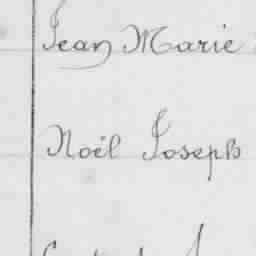 Jean Marie
Noël Joseph